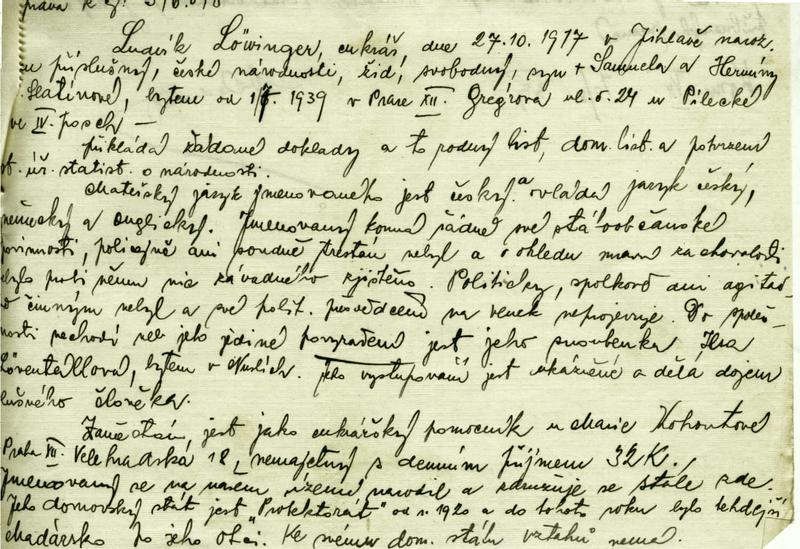 práva k čj.
Ludvík Löwinger, cukrář, dne 27.10.1917 v Jihlavě naroz.
příslušný, české národnosti, žid, svobodný, syn + Samuela a Hermíny
Slatinové, bytem od 1939 v Praze XII. Gregrova ul. č. 24 u Pilecké
ve IV. posch —
přikládá žádané doklady a to rodný list, dom. list. a potvrzení
st. úř. statist. o národnosti.
Mateřský jazyk jmenovaného jest český a ovládá jazyk český,
německý a anglický. Jmenovaný koná řádně své státoobčanské
povinnosti, policejně ani soudně trestán nebyl a v ohledu mravní zachovalosti
nebylo proti němu nic závadného zjištěno. Politicky, spolkově ani agitač-
ně činným nebyl a své polit. přesvědčení na venek neprojevuje. Do společ-
nosti nechodí neb jeho jediné povyražení jest jeho snoubenka Ilsa
Löventállová, bytem v Nuslích. Jeho vystupování jest ukázněné a dělá dojem
slušného člověka.
Zaměstnán, jest jako cukrářský pomocník u Marie Kohoutové
Praha XII. Velehradská 18, nemajetný s denním příjmem 32 K.
Jmenovaný se na našem území narodil a zdržuje se stále zde.
Jeho domovský stát jest "Protektorát" od r. 1920 a do tohoto roku bylo tehdejší
Maďarsko po jeho otci. Ke svému dom. státu vztahů nemá.